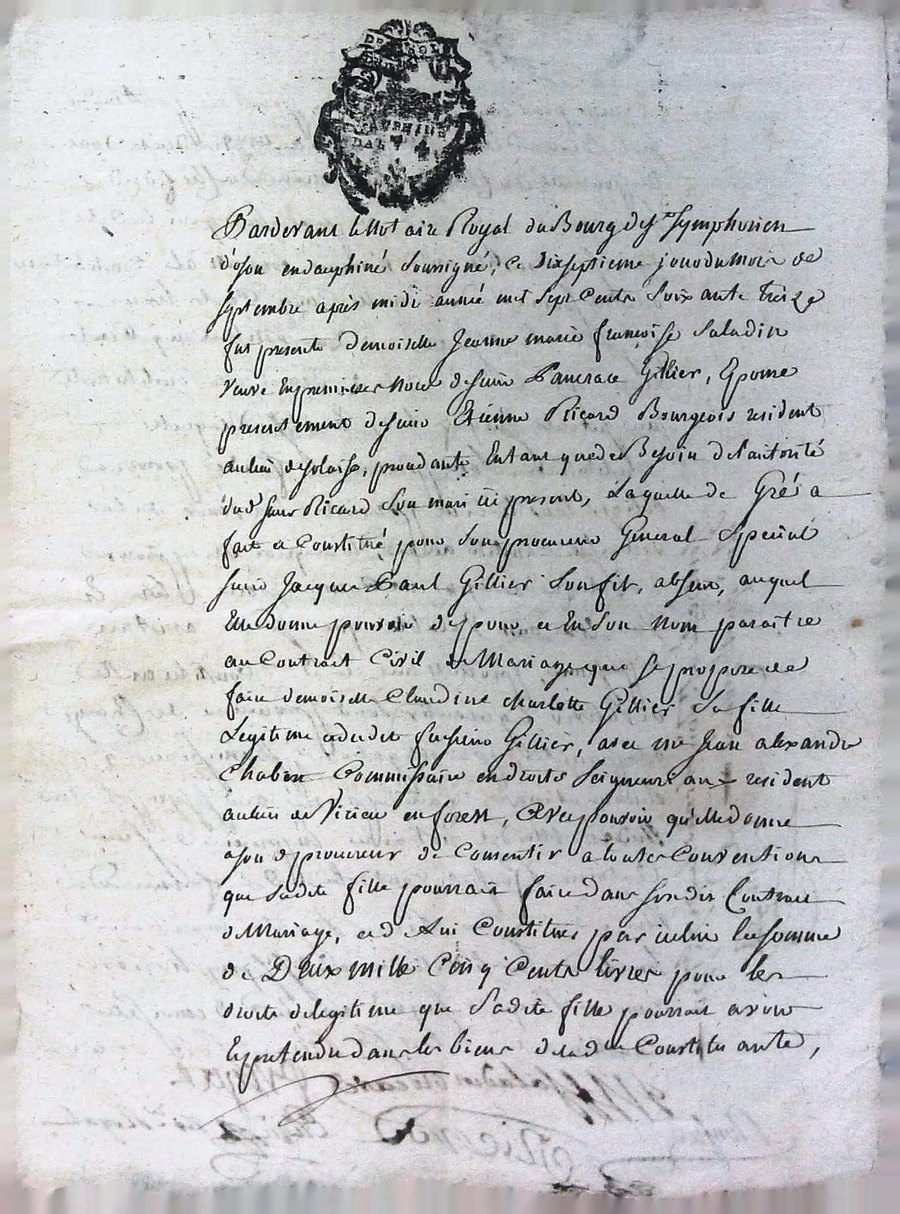 DAUPHINÉ
Pardevant le Notaire Royal du Bourg de St Symphorien
d'oson en dauphiné soussigné, ce dixseptieme jour du mois de
septembre après midi année mil sept cents soixante treize
fut presente demoiselle Jeanne marie françoise Saladin
veuve en premieres noces de sieur Pancrace Gillier, Epouse
presentement de sieur Etienne Ricard Bourgeois resident
au lieu de solaise, procedante Entant que de Besoin de l'autorité
dud. sieur Ricard son mari ici present, Laquelle de Gré a
fait et Constitué pour son procureur General Spécial
sieur Jacques Paul Gillier son fils, absent, auquel
Elle donne pouvoir de pour et En son nom paraitre
au Contract Civil de Mariage que se propose de
faire demoiselle Claudine charlotte Gillier sa fille
Legitime et dudit feu sieur Gillier, avec me Jean alexandre
Chabert Commissaire en droits Seigneuriaux resident
au lieu de Virieu en forest, avec pouvoir qu'elle donne
a son d. procureur de Consentir a toutes Conventions
que sadite fille pourrait faire dans sondit Contract
de Mariage, et de lui Constituer par icelui la somme
de Deux mille Cinq Cents livres pour les
droits de legitime que sadite fille pourrait avoir
Et pretendre dans les biens de lad. Constituante,